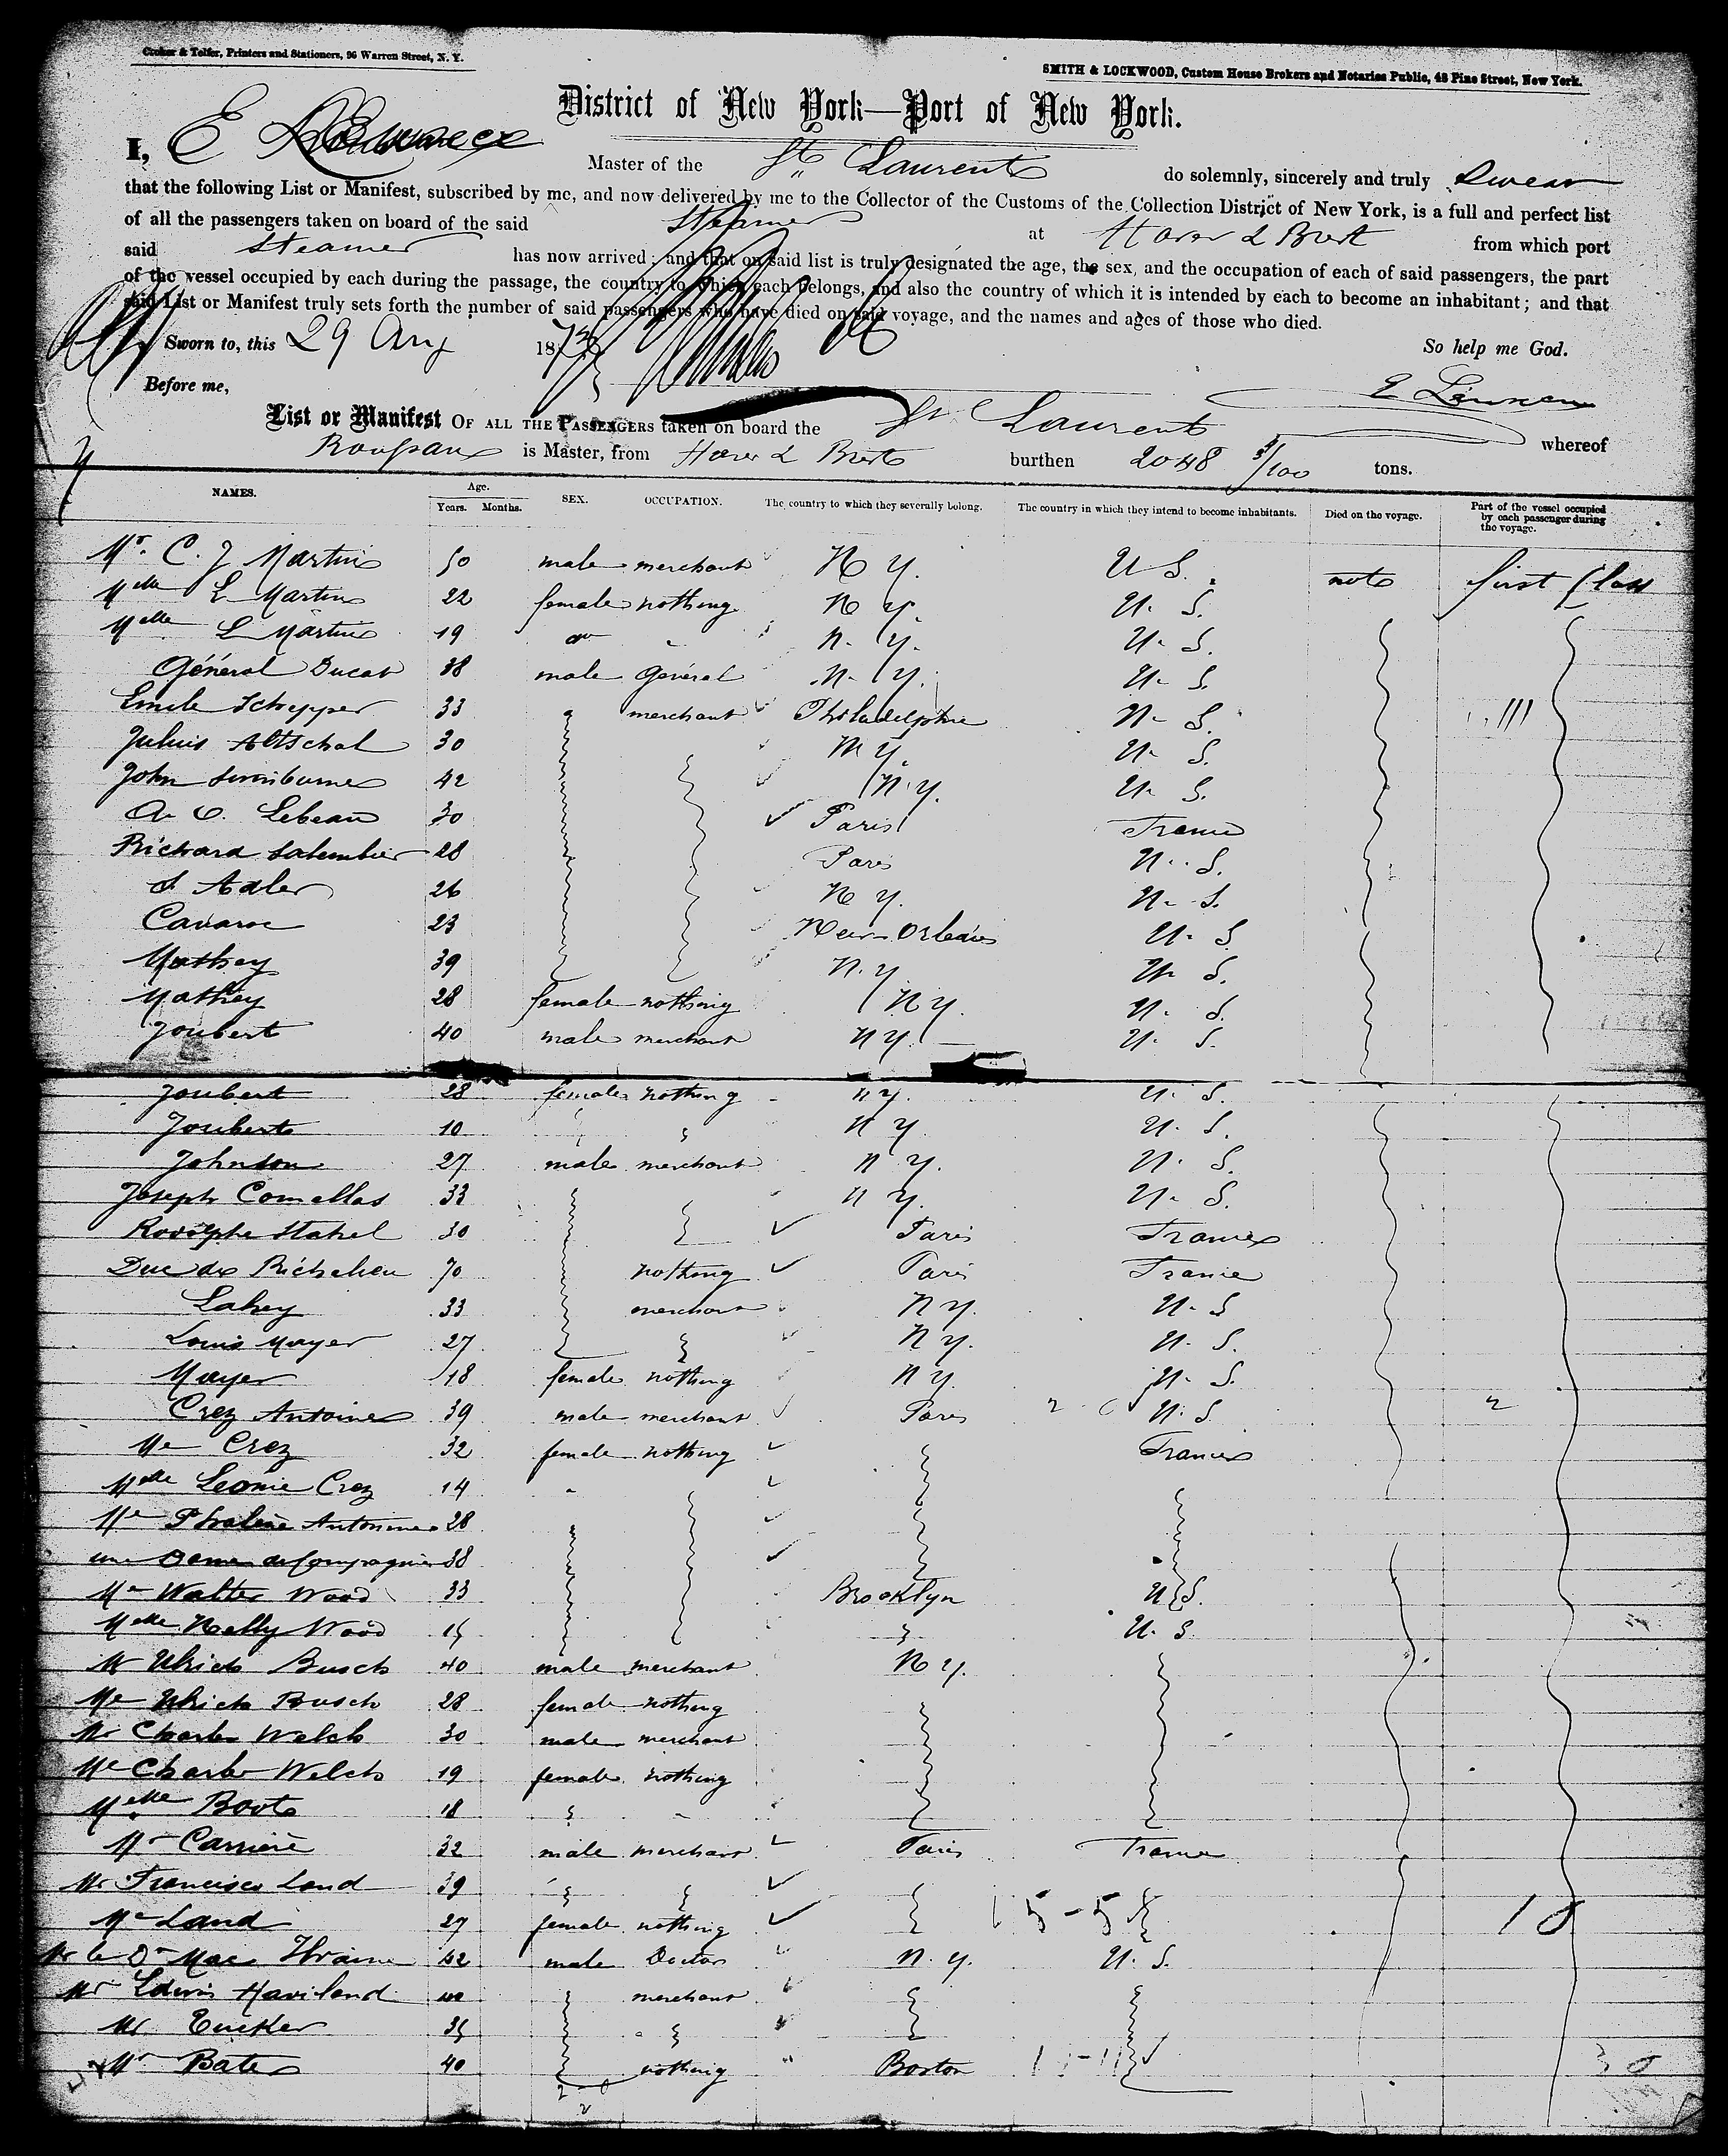 Croker & Telfer, Printers and Stationers, 96 Warren Street, N. Y.
SMITH & LOCKWOOD, Custom House Brokers and Notaries Public, 48 Pine Street, New York.
District of New York—Port of New York.
I, E Master of the St Laurent do solemnly, sincerely and truly swear
that the following List or Manifest, subscribed by me, and now delivered by me to the Collector of the Customs of the Collection District of New York, is a full and perfect list
of all the passengers taken on board of the said Steamer at Havre & Brest from which port
said steamer has now arrived; and that on said list is truly designated the age, the sex, and the occupation of each of said passengers, the part
of the vessel occupied by each during the passage, the country to which each belongs, and also the country of which it is intended by each to become an inhabitant; and that
said List or Manifest truly sets forth the number of said passengers who have died on said voyage, and the names and ages of those who died.
Sworn to, this 29 Aug 187 So help me God.
Before me, E
List or Manifest OF ALL THE PASSENGERS taken on board the St Laurent whereof
is Master, from Havre & Brest burthen 2048 /100 tons.
NAMES. Age. Years. Months. SEX. OCCUPATION. The country to which they severally belong. The country in which they intend to become inhabitants. Died on the voyage. Part of the vessel occupied by each passenger during the voyage.
Mr. C. J Martin 50 male merchant N Y. U S. note first Class
Melle E Martin 22 female nothing N Y. U. S.
Melle L Martin 19 do " N. Y. U. S.
Général Ducat 38 male Général N. Y. U. S.
Emile Schepper 33 " merchant Philadelphie U. S.
Julius Altschal 30 N Y. U. S.
John Swinburne 42 N. Y. U. S.
A. C. Lebeau 30 Paris France
Richard Salembier 28 Paris U. S.
S Adler 26 N Y. U. S.
Cavaroc 23 New Orleans U. S.
Mathey 39 N. Y. U. S.
Mathey 28 female nothing N Y. U. S.
Joubert 40 male merchant N Y. U. S.
Joubert 28 female nothing N Y. U. S.
Joubert 10 N Y. U. S.
Johnson 27 male merchant N Y. U. S.
Joseph Comellas 33 N Y. U. S.
Rodolphe Stahel 30 Paris France
Duc de Richelieu 70 nothing Paris France
Lahey 33 merchant N Y. U. S
Louis Mayer 27 N Y. U. S.
Mayer 18 female nothing N Y. U. S.
Crez Antoine 39 male merchant Paris U. S.
Me Crez 32 female nothing France
Melle Léonie Crez 14 "
Me Antoine 28
une Dame de Compagnie 38
Me Walter Wood 33 Brooklyn U S.
Melle Nelly Wood 15 U. S.
Mr Ulrich Busch 40 male merchant N Y.
Me Ulrich Busch 28 female nothing
Mr Charles Welch 30 male merchant
Me Charles Welch 19 female nothing
Melle Boote 18
Mr Carrière 32 male merchant Paris France
Mr Francisco Land 39
Me Land 27 female nothing 5-5 10
Mr le Dr Mac 42 male Doctor N. Y. U. S.
Mr Edwin Haviland 40 merchant
Mr Tucker 35
Mr Bates 40 nothing Boston